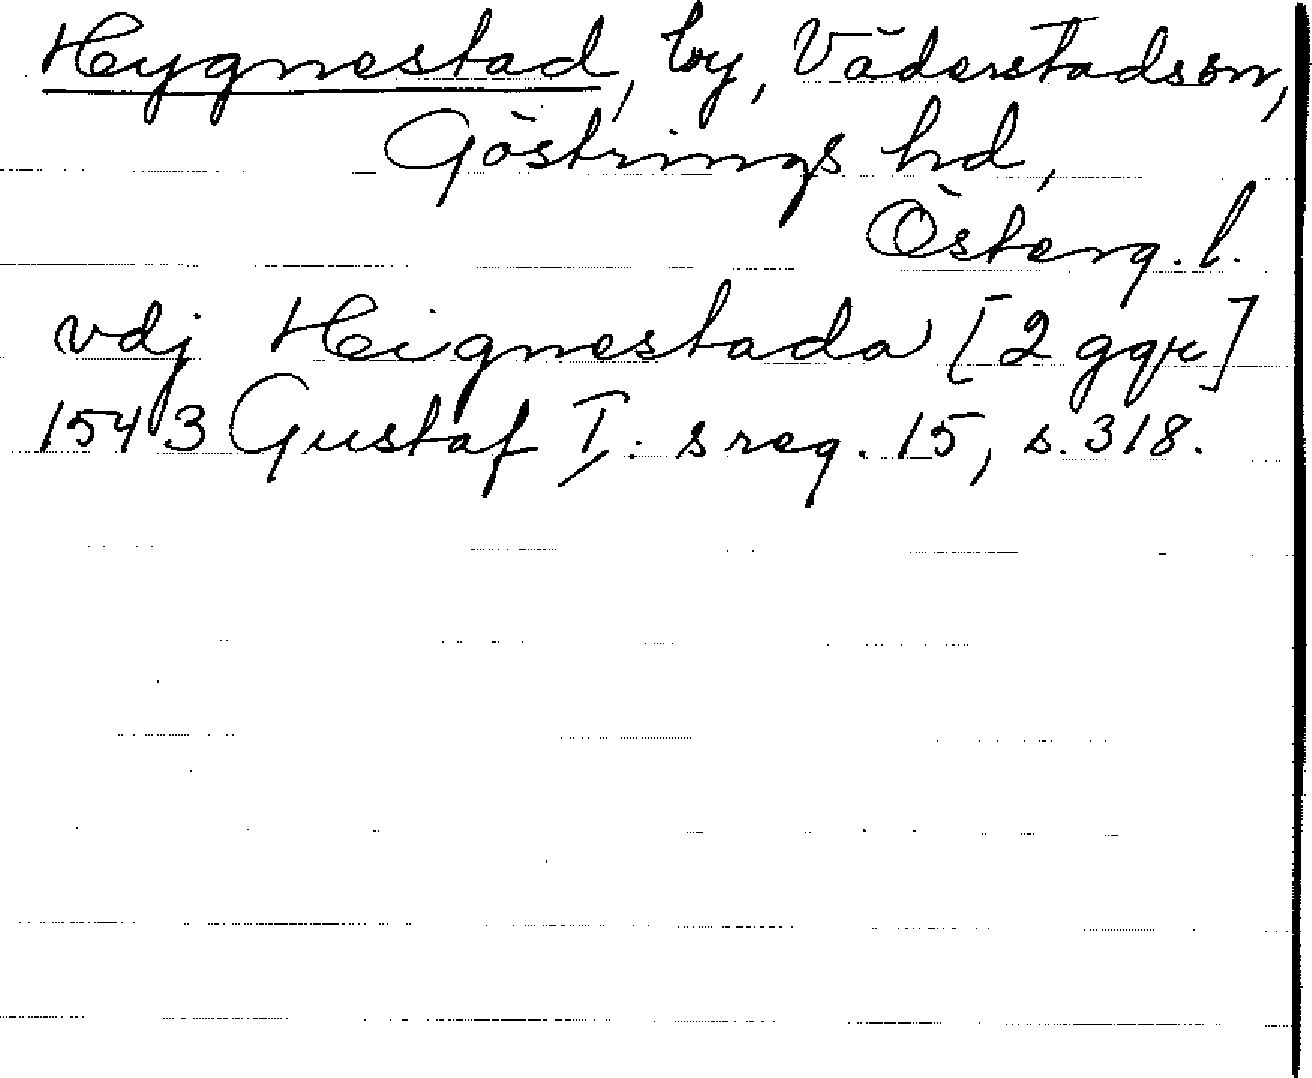 Hygnestad, by, Väderstadsn,
Göstrings hd,
Österg. l.
vdj Heignestada [2 ggr]
1543 Gustaf I: s reg. 15, s. 318.